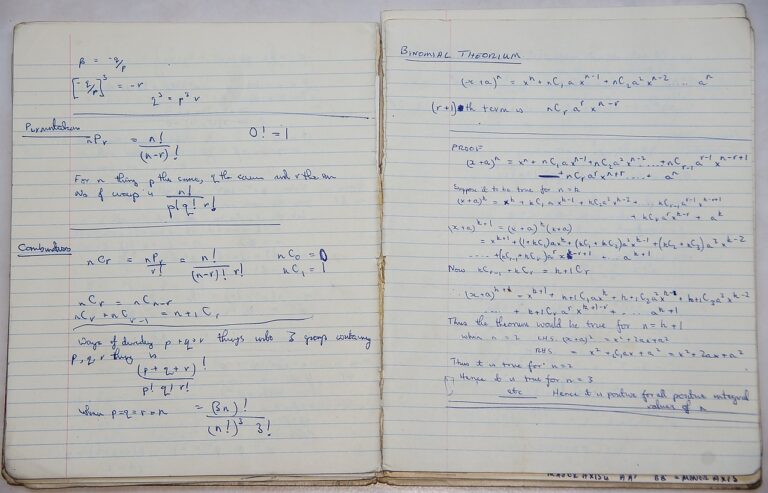 β = -q/p
[-q/p]³ = -r
q³ = p³ r
Purmutations
nPr = n!/(n-r)! 0! = 1
For n thing p the same, q the same and r the
No of ways is n!/(p! q! r!)
Combinations
nCr = nPr/r! = n!/((n-r)! r!) nC0 = 0
nC1 = 1
nCr = nCn-r
nCr + nCr-1 = n+1Cr
Ways of dividing p+q+r things into 3 groups containing
p, q, r things is
(p+q+r)!/(p! q! r!)
when p=q=r=n = (3n)!/((n!)³ 3!)
BINOMIAL THEORIUM
(x+a)ⁿ = xⁿ + nC1 a xⁿ⁻¹ + nC2 a² xⁿ⁻² .... aⁿ
(r+1)th term is nCr aʳ xⁿ⁻ʳ
PROOF
(x+a)ⁿ = xⁿ + nC1 axⁿ⁻¹ + nC2 a² xⁿ⁻² .... + nCr-1 aʳ⁻¹ xⁿ⁻ʳ⁺¹
+ nCr aʳ xⁿ⁺ʳ .... aⁿ
Suppose it to be true for n = k
(x+a)ᵏ = xᵏ + kC1 a xᵏ⁻¹ + kC2 a² xᵏ⁻² .... kCr-1 aʳ⁻¹ xᵏ⁻ʳ⁺¹
+ kCr aʳ xᵏ⁻ʳ + aᵏ
(x+a)ᵏ⁺¹ = (x+a)ᵏ (x+a)
= xᵏ⁺¹ + (1+kC1) axᵏ + (kC1 + kC2) a² xᵏ⁻¹ + (kC2 + kC3) a² xᵏ⁻²
.... + (kCr-1 + kCr) aʳ xᵏ⁻ʳ⁺¹ + ... aᵏ⁺¹
Now kCr-1 + kCr = k+1Cr
(x+a)ᵏ⁺¹ = xᵏ⁺¹ + k+1C1 axᵏ + k+1C2 a² xᵏ⁻¹ + k+1C3 a³ xᵏ⁻²
.... + k+1Cr aʳ xᵏ⁺¹⁻ʳ .... aᵏ⁺¹
Thus the theorem would be true for n = k+1
when n = 2 LHS (x+a)² = x² + 2ax + a²
RHS = x² + 2C1 ax + a² = x² + 2ax + a²
Thus it is true for n=2
Hence it is true for n = 3
etc Hence it is positive for all positive integral
values of n
MAJOR AXIS AA' BB' = MINOR AXIS